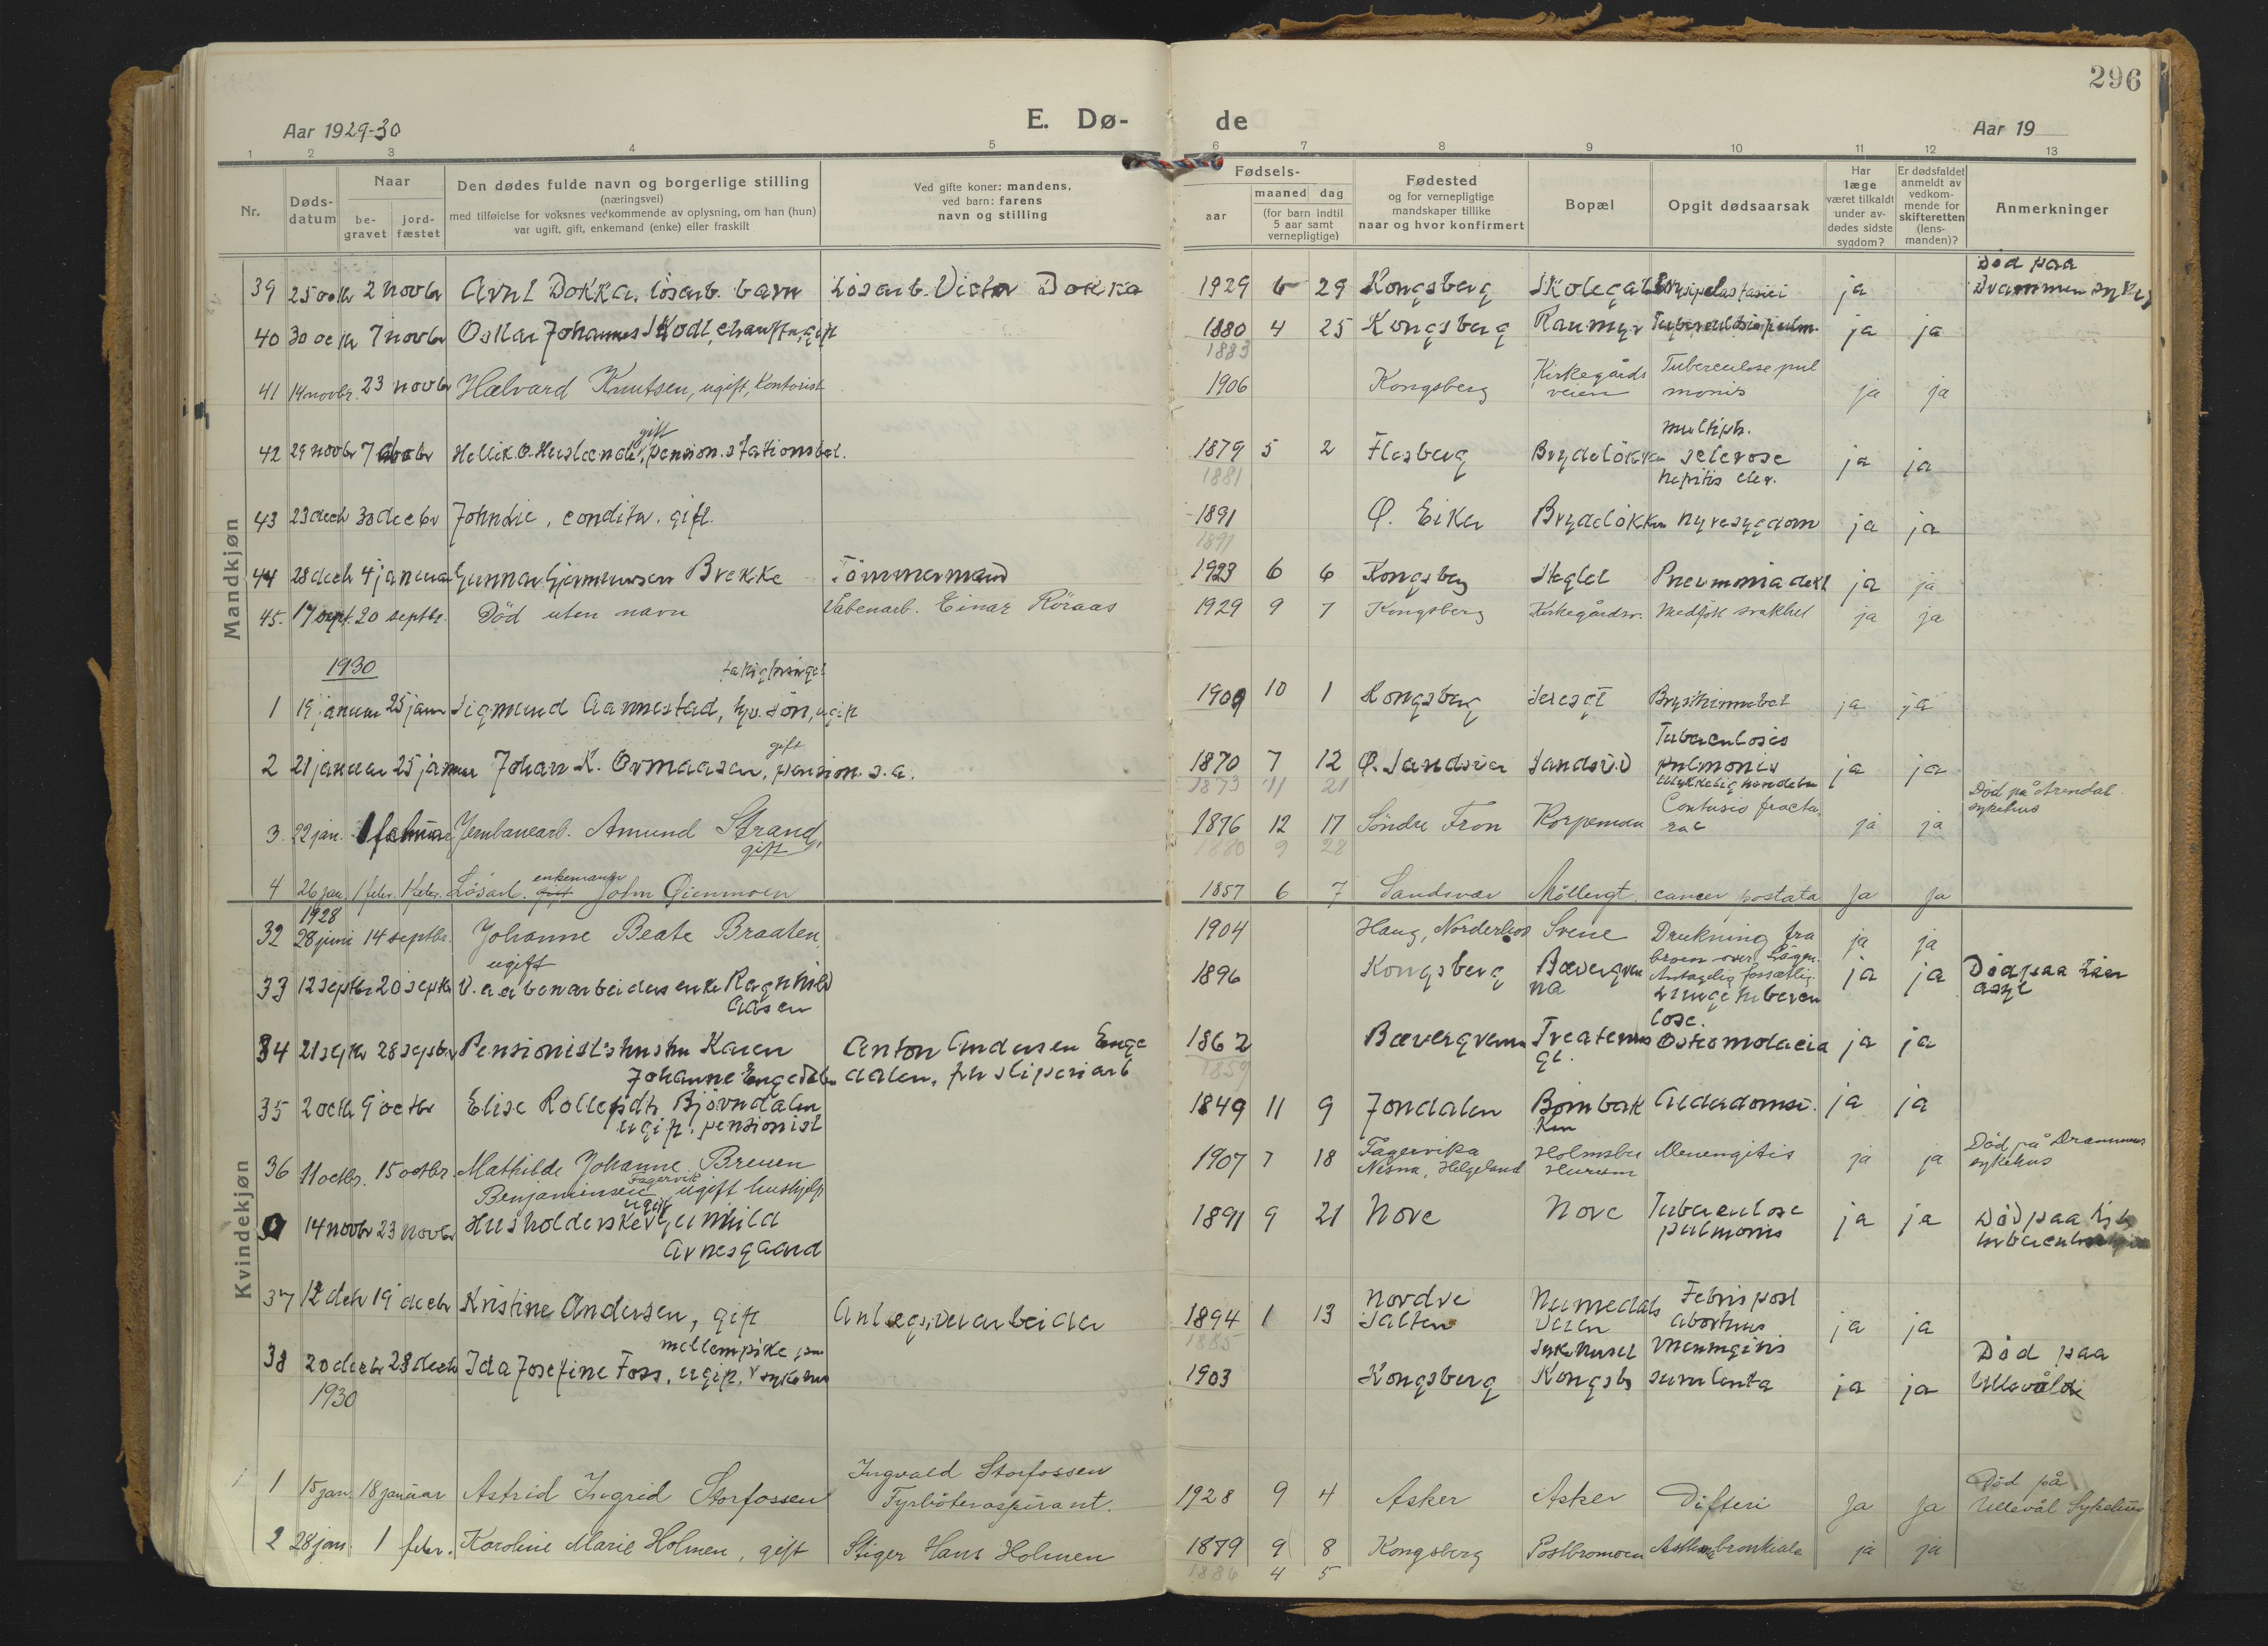 296
Aar 1929-30
E. Dø-
de
Aar 19
1 2 3 4 5 6 7 8 9 10 11 12 13
Nr.
Døds-
datum
Naar
be-
gravet
jord-
fæstet
Den dødes fulde navn og borgerlige stilling
(næringsvei)
med tilføielse for voksnes vedkommende av oplysning, om han (hun)
var ugift, gift, enkemand (enke) eller fraskilt
Ved gifte koner: mandens,
ved barn: farens
navn og stilling
Fødsels-
aar
maaned dag
(for barn indtil
5 aar samt
vernepligtige)
Fødested
og for vernepligtige
mandskaper tillike
naar og hvor konfirmert
Bopæl
Opgit dødsaarsak
Har
læge
været tilkaldt
under av-
dødes sidste
sygdom?
Er dødsfaldet
anmeldt av
vedkom-
mende for
skifteretten
(lens-
manden)?
Anmerkninger
Mandkjøn
39 25 octbr 2 novbr Dokka, løsarb. barn Løsarb. Victor Dokka 1929 6 29 Kongsberg ja Død paa
Drammen sykeh
40 30 octbr 7 novbr Oskar Johannes gift 1880 4 25 Kongsberg Raumyr Tuberculosis pulm. ja ja
1883
41 14 novbr. 23 novbr Halvard Knutsen, ugift, Kontorist 1906 Kongsberg Kirkegårds
veien Tuberculose pul
monis ja ja
42 29 novbr 7 Hellik O. gift pension. 1879 5 2 Flesberg Brydeløkken multiph.
sclerose ja ja
1881
43 23 decbr 30 decbr John Lie, conditor. gift 1891 Ø. Eiker Brydeløkken nyresygdom ja ja
1891
44 28 decbr 4 januar Gunnar Brekke Tømmermand 1923 6 6 Kongsberg Pneumonia ja ja
45. 17 sept. 20 septbr. Død uten navn Våbenarb. Einar Röraas 1929 9 7 Kongsberg Kirkegårdsv. Medfødt svakhet ja ja
1930
1 19 januar 25 jan Sigmund Aannestad, søn, ugift 1909 10 1 Kongsberg ja ja
2 21 januar 25 januar Johan K. Ormaasen, gift pension. s.a. 1870 7 12 Ø. Sandsvær Sandsv. Tuberculosis
pulmonis ja ja
1873 11 21
3. 22 jan. 1 februar Jernbanearb. Amund Strand,
gift 1876 12 17 Söndre Fron Korpemoen
Contusio fractu-
rae ja ja Død på Arendal
sykehus
1880 9 28
4 26 jan. 1 febr. 1 febr. Løsarb. enkemann gift John Øienmoen 1857 6 7 Sandsvær Möllergt. cancer postata Ja Ja
Kvindekjøn
1928
32 28 juni 14 septbr. Johanne Beate Braaten,
ugift 1904 Haug, Norderhov Svene Drukning fra
broen over Lågen.
ja ja
33 12 septbr 20 septbr Vaabenarbeiders enke Ragnhild
Aasen 1896 Kongsberg Bævergren
na ja ja Død paa Lier
asyl
34 21 septbr 28 septbr Pensionist's hustru Karen
Johanne Engedalen Anton Andersen Enge
dalen, fhv sliperiarb 1862 Bævergrenna
gt. Osteomolacia ja ja
1859
35 2 octbr 9 octbr Elise Bjørndalen
ugift. pensionist 1849 11 9 Jondalen Alderdomssv. ja ja
36 11 octbr. 15 octbr Mathilde Johanne Breuen
Fagervik
Benjaminsen ugift hushjelp 1907 7 18 Fagervika
Nesna, Helgeland Holmsbu
Hurum Menengitis ja ja Død på Drammens
sykehus
14 novbr 23 novbr Husholderske ugift Gunhild
Arnesgaard 1891 9 21 Nore Nore Tuberculose
pulmonis ja ja Død paa
37 12 decbr 19 decbr Kristine Andersen, gift Anlægsveiarbeider 1894 1 13 Nordre
Salten Numedals
veien Febris post
abortus ja ja
1885
38 20 decbr 28 decbr Ida Josefine Foss, ugift, mellempike paa
sykehus 1903 Kongsberg Sykehuset
Kongsb ja ja Død paa
Ullevål
1930
1 15 jan. 18 januar Astrid Ingrid Storfossen Ingvald Storfossen
Fyrböteraspirant. 1928 9 4 Asker Asker Difteri Ja Ja Død på
Ullevål Sykehus
2 28 jan. 1 febr. Karoline Marie Holmen, gift Stiger Hans Holmen 1879 9 8 Kongsberg Postbromoen Asthma bronkiale ja ja
1886 4 5